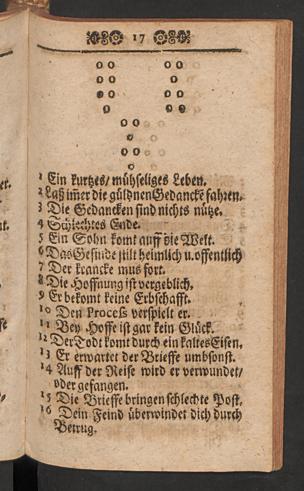 17
1 Ein kurtzes/ mühseliges Leben.
2 Laß im̃er die güldnen Gedancke fahren.
3 Die Gedancken sind nichts nütze.
4 Schlechtes Ende.
5 Ein Sohn komt auff die Welt.
6 Das Gesinde stilt heimlich u. offentlich
7 Der krancke mus fort.
8 Die Hoffnung ist vergeblich.
9 Er bekomt keine Erbschafft.
10 Den Proceß verspielt er.
11 Bey Hoffe ist gar kein Glück.
12 Der Todt komt durch ein kaltes Eisen.
13 Er erwartet der Brieffe umbsonst.
14 Auff der Reise wird er verwundet/
oder gefangen.
15 Die Brieffe bringen schlechte Post.
16 Dein Feind überwindet dich durch
Betrug.